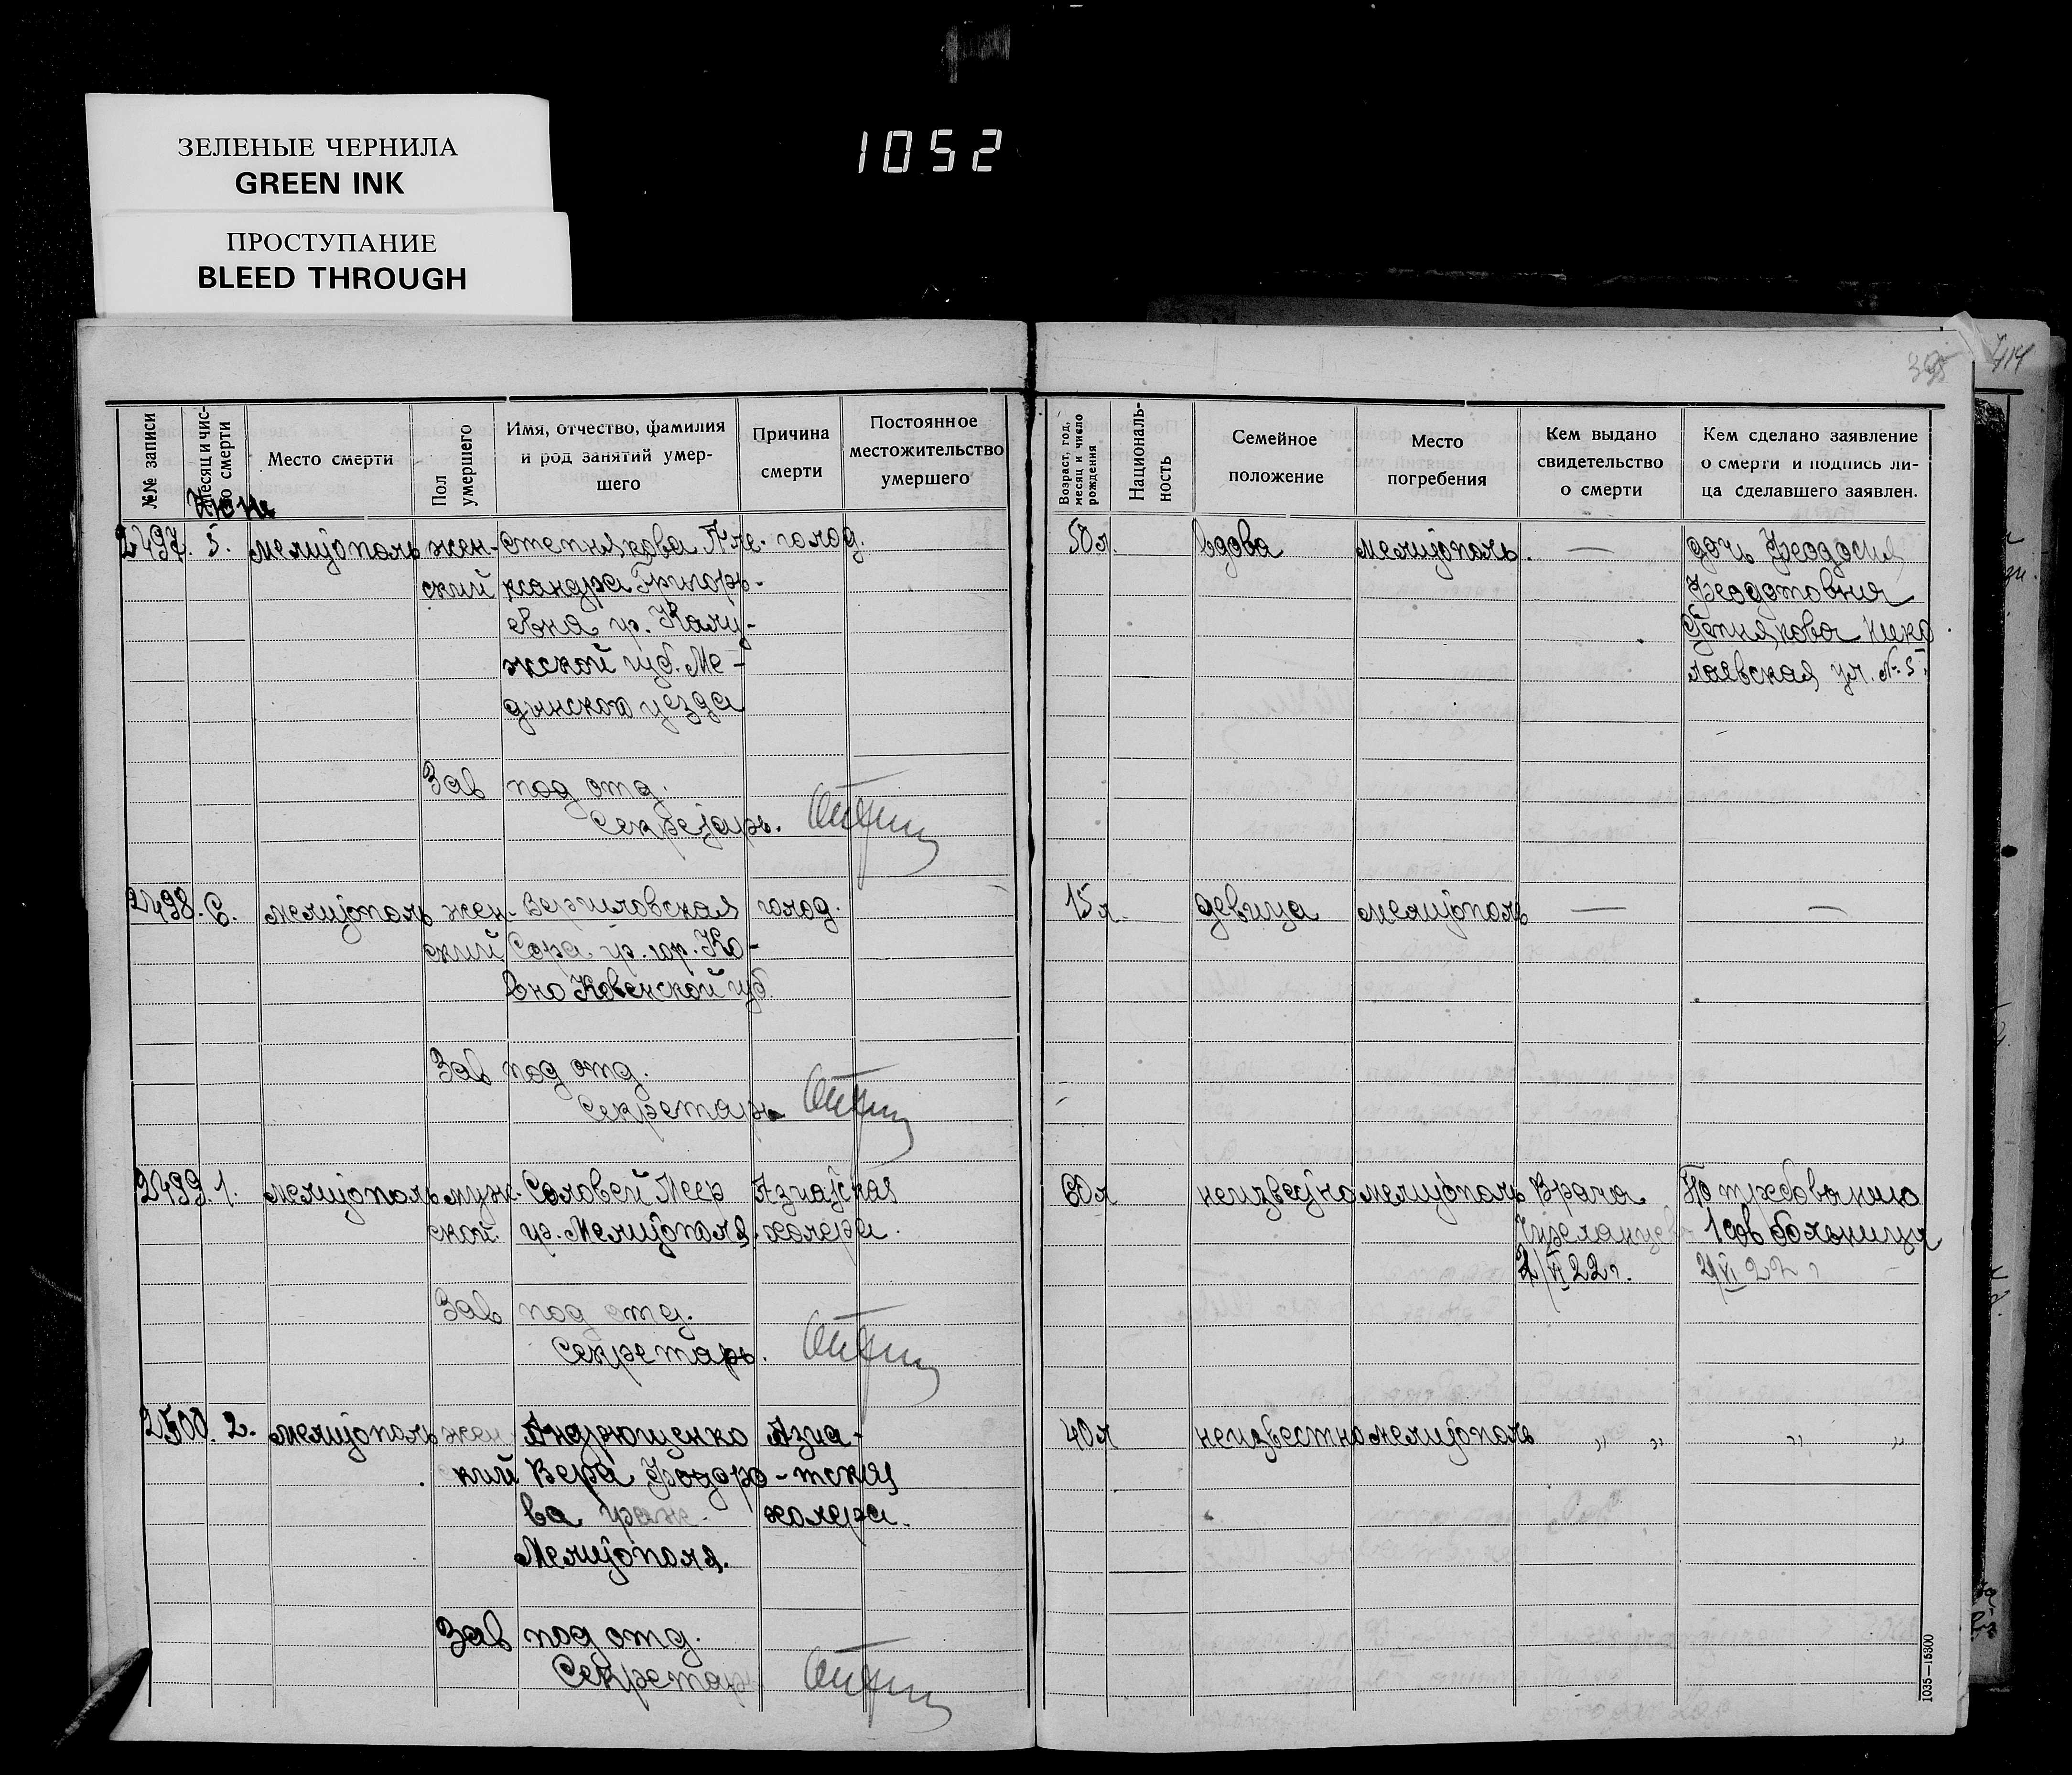 1052
ЗЕЛЕНЫЕ ЧЕРНИЛА
GREEN INK
ПРОСТУПАНИЕ
BLEED THROUGH
414
№№ записи
Месяц и число смерти
Место смерти
Пол умершего
Имя, отчество, фамилия
и род занятий умер-
шего
Причина
смерти
Постоянное
местожительство
умершего
Возраст, год, месяц и число рождения
Националь-
ность
Семейное
положение
Место
погребения
Кем выдано
свидетельство
о смерти
Кем сделано заявление
о смерти и подпись ли-
ца сделавшего заявлен.
Июнь
2497. 5. Мелитополь жен- Степнякова Але- голод. 50 л. вдова Мелитополь. — дочь Феодосия
ский ксандра Григорь- Феодотовна
евна гр. Калу- Степнякова Нико
жской губ. Ме- лаевская ул. № 5.
дынского уезда
Зав под отд.
Секретарь.
2498. 6. Мелитополь жен- Вержиловская голод. 15 л. девица Мелитополь — —
ский Сора гр. гор. Ко-
вно Ковенской губ.
Зав под отд.
Секретарь
2499. 1. Мелитополь муж- Соловей Меер Азиатская 60 л неизвестно Мелитополь Врача По требованию
ской. гр. Мелитополя. холера. 1 сов больницы
2/VI 22 г. 2/VI 22 г
Зав под отд.
Секретарь.
2500. 2. Мелитополь жен Андрющенко Азиа- 40 л неизвестно Мелитополь „ „ „ „
кий Вера Федоро- тская
ва граж. холера.
Мелитополя.
Зав под отд.
Секретарь
1035—15800